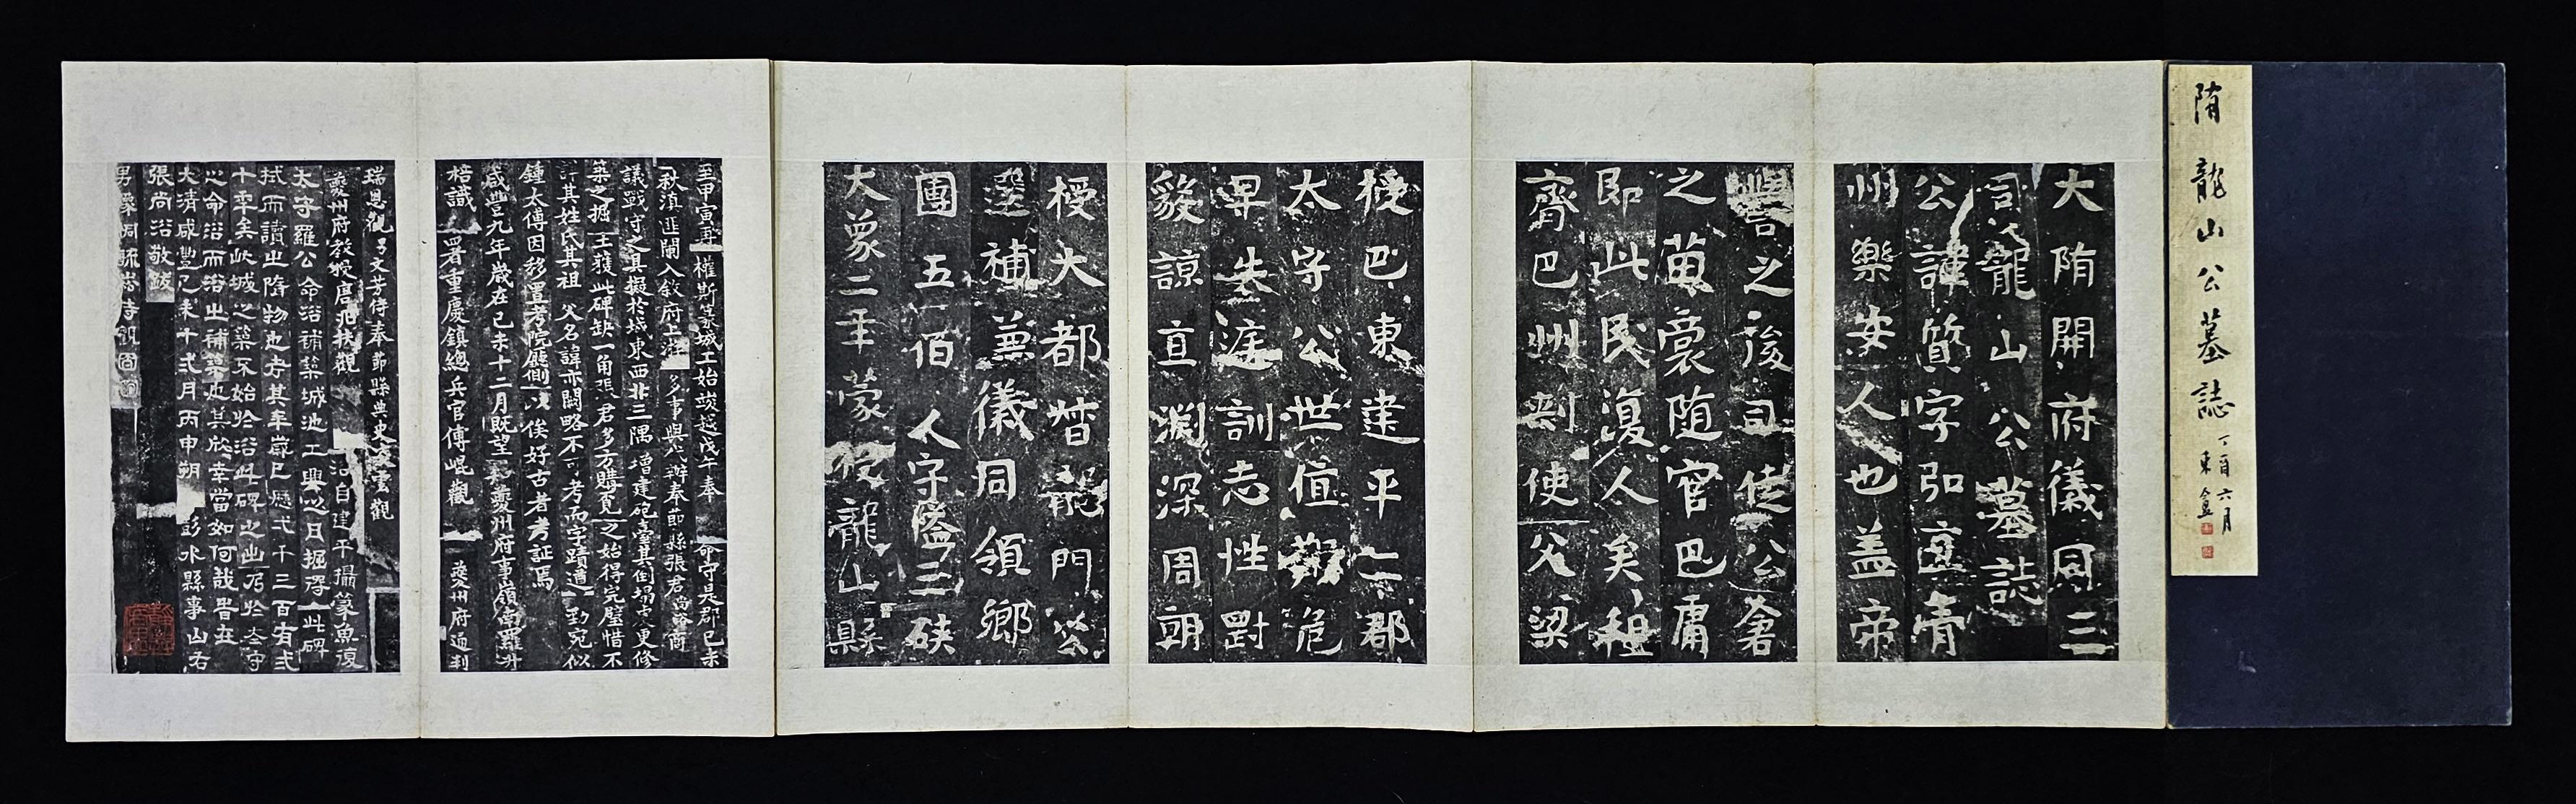 隋龍山公墓誌
丁酉六月
東盦
大隋開府儀同三
司龍山公墓誌
公諱質字弘直青
州樂安人也盖帝
嚳之後司徒公奮
之苗裔随官巴庸
即此民復人矣祖
齊巴州刾使父梁
授巴東建平二郡
太守公世值艱危
早失庭訓志性罰
毅諒直渕深周朝
授大都督龍門公
選補兼儀同領鄉
團五佰人守隘三硤
大象二年蒙授龍山縣
至甲寅再權斯篆城工始竣越戊午奉命守是郡己未
秋滇匪闌入敘府上游多事與參辦奉節縣張君尚谘商
議戰守之具擬於城東西北三隅增建砲臺其倒塌處更修
築之掘土獲此碑缺一角張君多方購覓之始得完璧惜不
計其姓氏其祖父名諱亦闕略不可考而字蹟遒勁宛似
鍾太傅因移置考院廳側以俟好古者考証焉
咸豐九年歲在己未十二月既望知夔州府事嶺南羅升
棓識署重慶鎮總兵官傅崐觀夔州府通判
瑞恩觀弓文芳侍奉節縣典史
夔州府教授唐治自建平攝篆魚復
太守羅公命谘補築城池工興之日掘淂此碑
拭而讀出隋物也考其年嵗已歷弌千三百有弎
十年矣此城之築不始於谘此碑之出乃於太守
之命谘而谘之補築也其欣幸當如何哉昔在
大清咸豐己未十弍月丙申朔彭水縣事山右
張尚谘敬跋